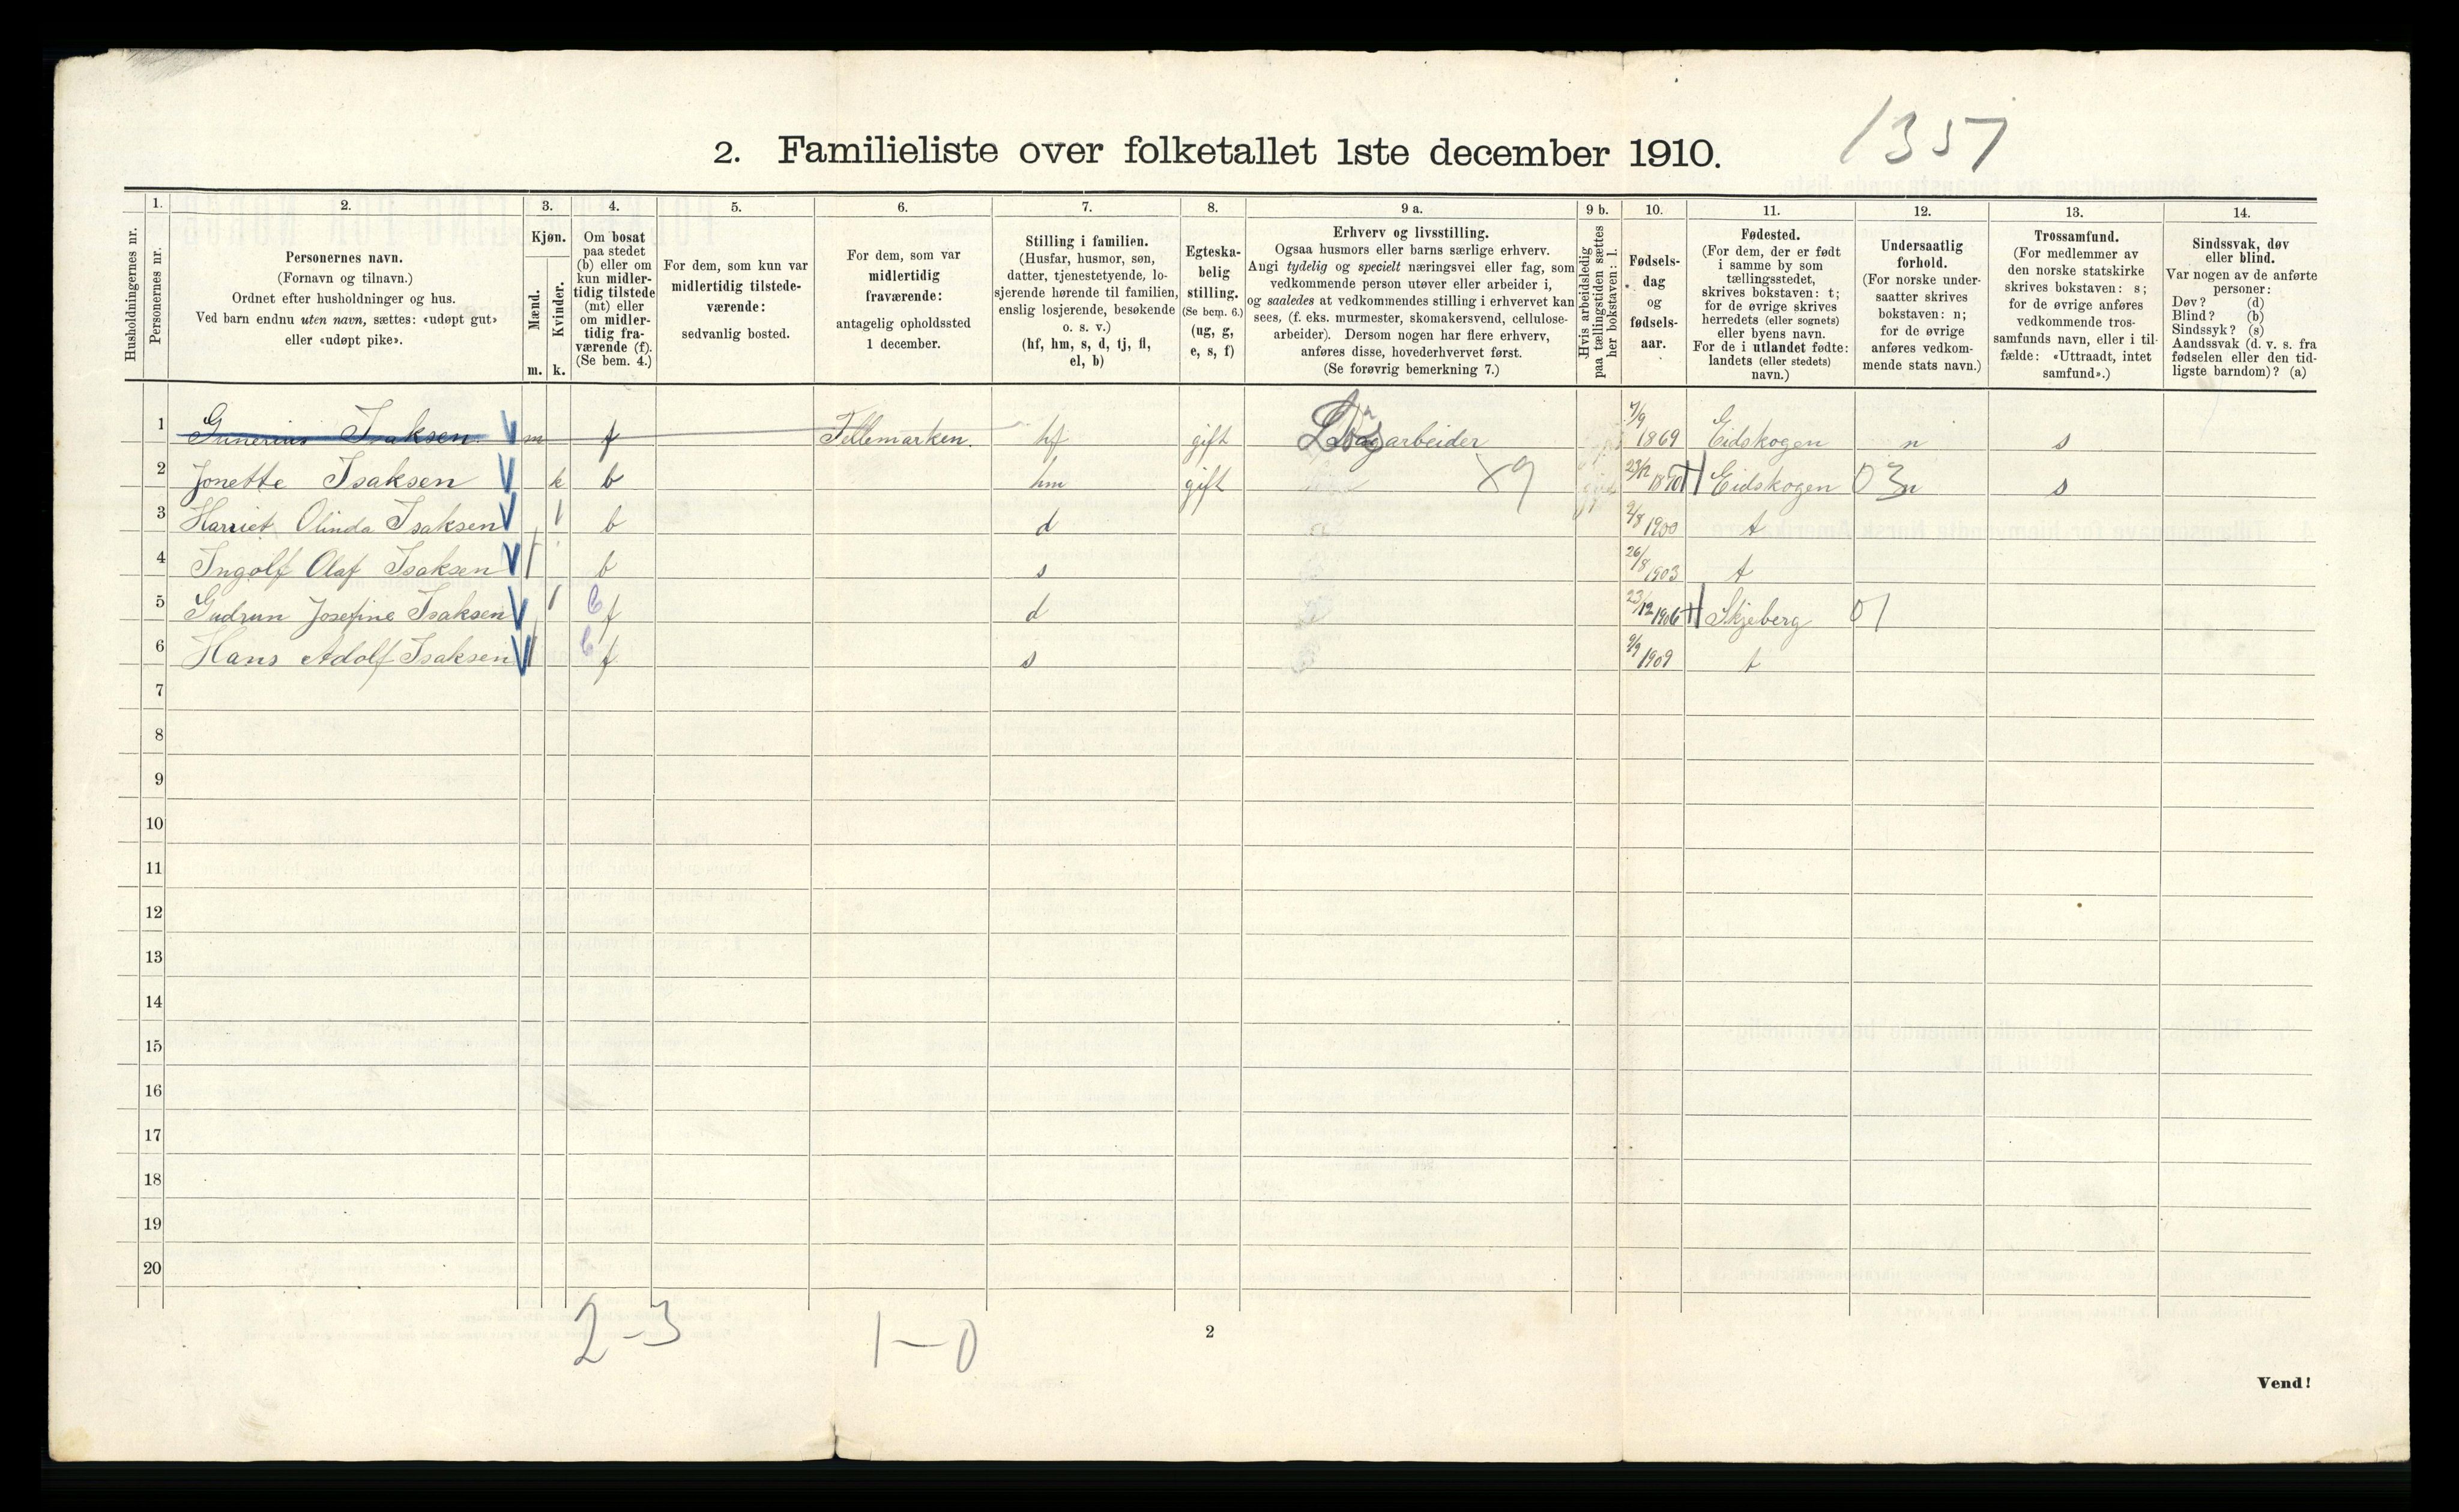 1357
2. Familieliste over folketallet 1ste december 1910.
Husholdningernes nr.
1.
Personernes nr.
2.
Personernes navn.
(Fornavn og tilnavn.)
Ordnet efter husholdninger og hus.
Ved barn endnu uten navn, sættes: «udøpt gut»
eller «udøpt pike».
3.
Kjøn.
Mænd.
Kvinder.
m. k.
4.
Om bosat
paa stedet
(b) eller om
kun midler-
tidig tilstede
(mt) eller
om midler-
tidig fra-
værende (f).
(Se bem. 4.)
5.
For dem, som kun var
midlertidig tilstede-
værende:
sedvanlig bosted.
6.
For dem, som var
midlertidig
fraværende:
antagelig opholdssted
1 december.
7.
Stilling i familien.
(Husfar, husmor, søn,
datter, tjenestetyende, lo-
sjerende hørende til familien,
enslig losjerende, besøkende
o. s. v.)
(hf, hm, s, d, tj, fl,
el, b)
8.
Egteska-
belig
stilling.
(Se bem. 6.)
(ug, g,
e, s, f)
9 a.
Erhverv og livsstilling.
Ogsaa husmors eller barns særlige erhverv.
Angi tydelig og specielt næringsvei eller fag, som
vedkommende person utøver eller arbeider i,
og saaledes at vedkommendes stilling i erhvervet kan
sees, (f. eks. murmester, skomakersvend, cellulose-
arbeider). Dersom nogen har flere erhverv,
anføres disse, hovederhvervet først.
(Se forøvrig bemerkning 7.)
9 b.
Hvis arbeidsledig
paa tællingstiden sættes
her bokstaven: l.
10.
Fødsels-
dag
og
fødsels-
aar.
11.
Fødested.
(For dem, der er født
i samme by som
tællingsstedet,
skrives bokstaven: t;
for de øvrige skrives
herredets (eller sognets)
eller byens navn.
For de i utlandet fødte:
landets (eller stedets)
navn.)
12.
Undersaatlig
forhold.
(For norske under-
saatter skrives
bokstaven: n;
for de øvrige
anføres vedkom-
mende stats navn.)
13.
Trossamfund.
(For medlemmer av
den norske statskirke
skrives bokstaven: s;
for de øvrige anføres
vedkommende tros-
samfunds navn, eller i til-
fælde: «Uttraadt, intet
samfund».)
14.
Sindssvak, døv
eller blind.
Var nogen av de anførte
personer:
Døv? (d)
Blind? (b)
Sindssyk? (s)
Aandssvak (d. v. s. fra
fødselen eller den tid-
ligste barndom)? (a)
1 Gunerius Isaksen m f Tellemarken. hf gift arbeider 7/9 1869 Eidskogen n s
2 Jonette Isaksen k b hm gift 89 23/12 1870 Eidskogen 03 n s
3 Harriet Olinda Isaksen b d 2/8 1900 t
4 Ingolf Olaf Isaksen b s 26/8 1903 t
5 Gudrun Josefine Isaksen f d 23/12 1906 Skjeberg 01
6 Hans Adolf Isaksen f s 9/9 1909 t
7
8
9
10
11
12
13
14
15
16
17
18
19
20
2-3
1-0
2
Vend!